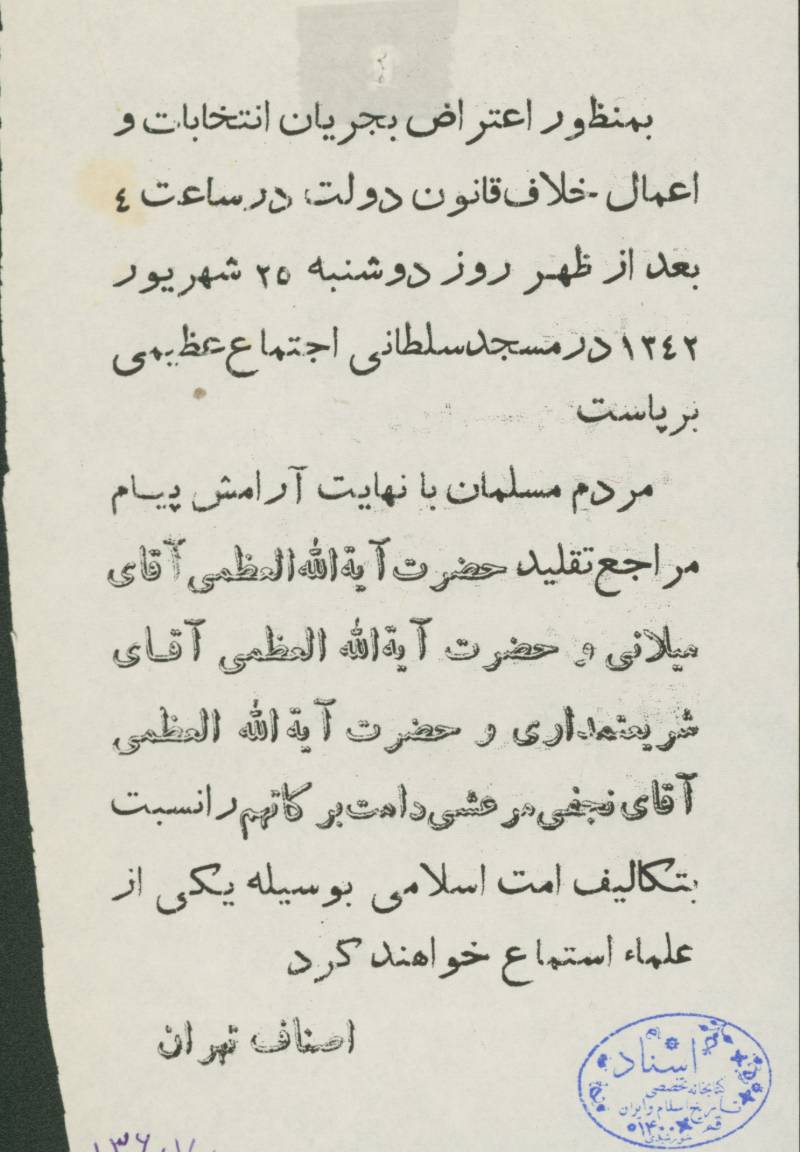 بمنظور اعتراض بجریان انتخابات و
اعمال خلاف قانون دولت در ساعت ٤
بعد از ظهر روز دوشنبه ٢٥ شهریور
١٣٤٢ در مسجد سلطانی اجتماع عظیمی
برپاست
مردم مسلمان با نهایت آرامش پیام
مراجع تقلید حضرت آیة الله العظمی آقای
میلانی و حضرت آیة الله العظمی آقای
شریعتمداری و حضرت آیة الله العظمی
آقای نجفی مرعشی دامت برکاتهم را نسبت
بتکالیف امت اسلامی بوسیله یکی از
علماء استماع خواهند کرد
اصناف تهران
اسناد
کتابخانه تخصصی
تاریخ اسلام و ایران
قم